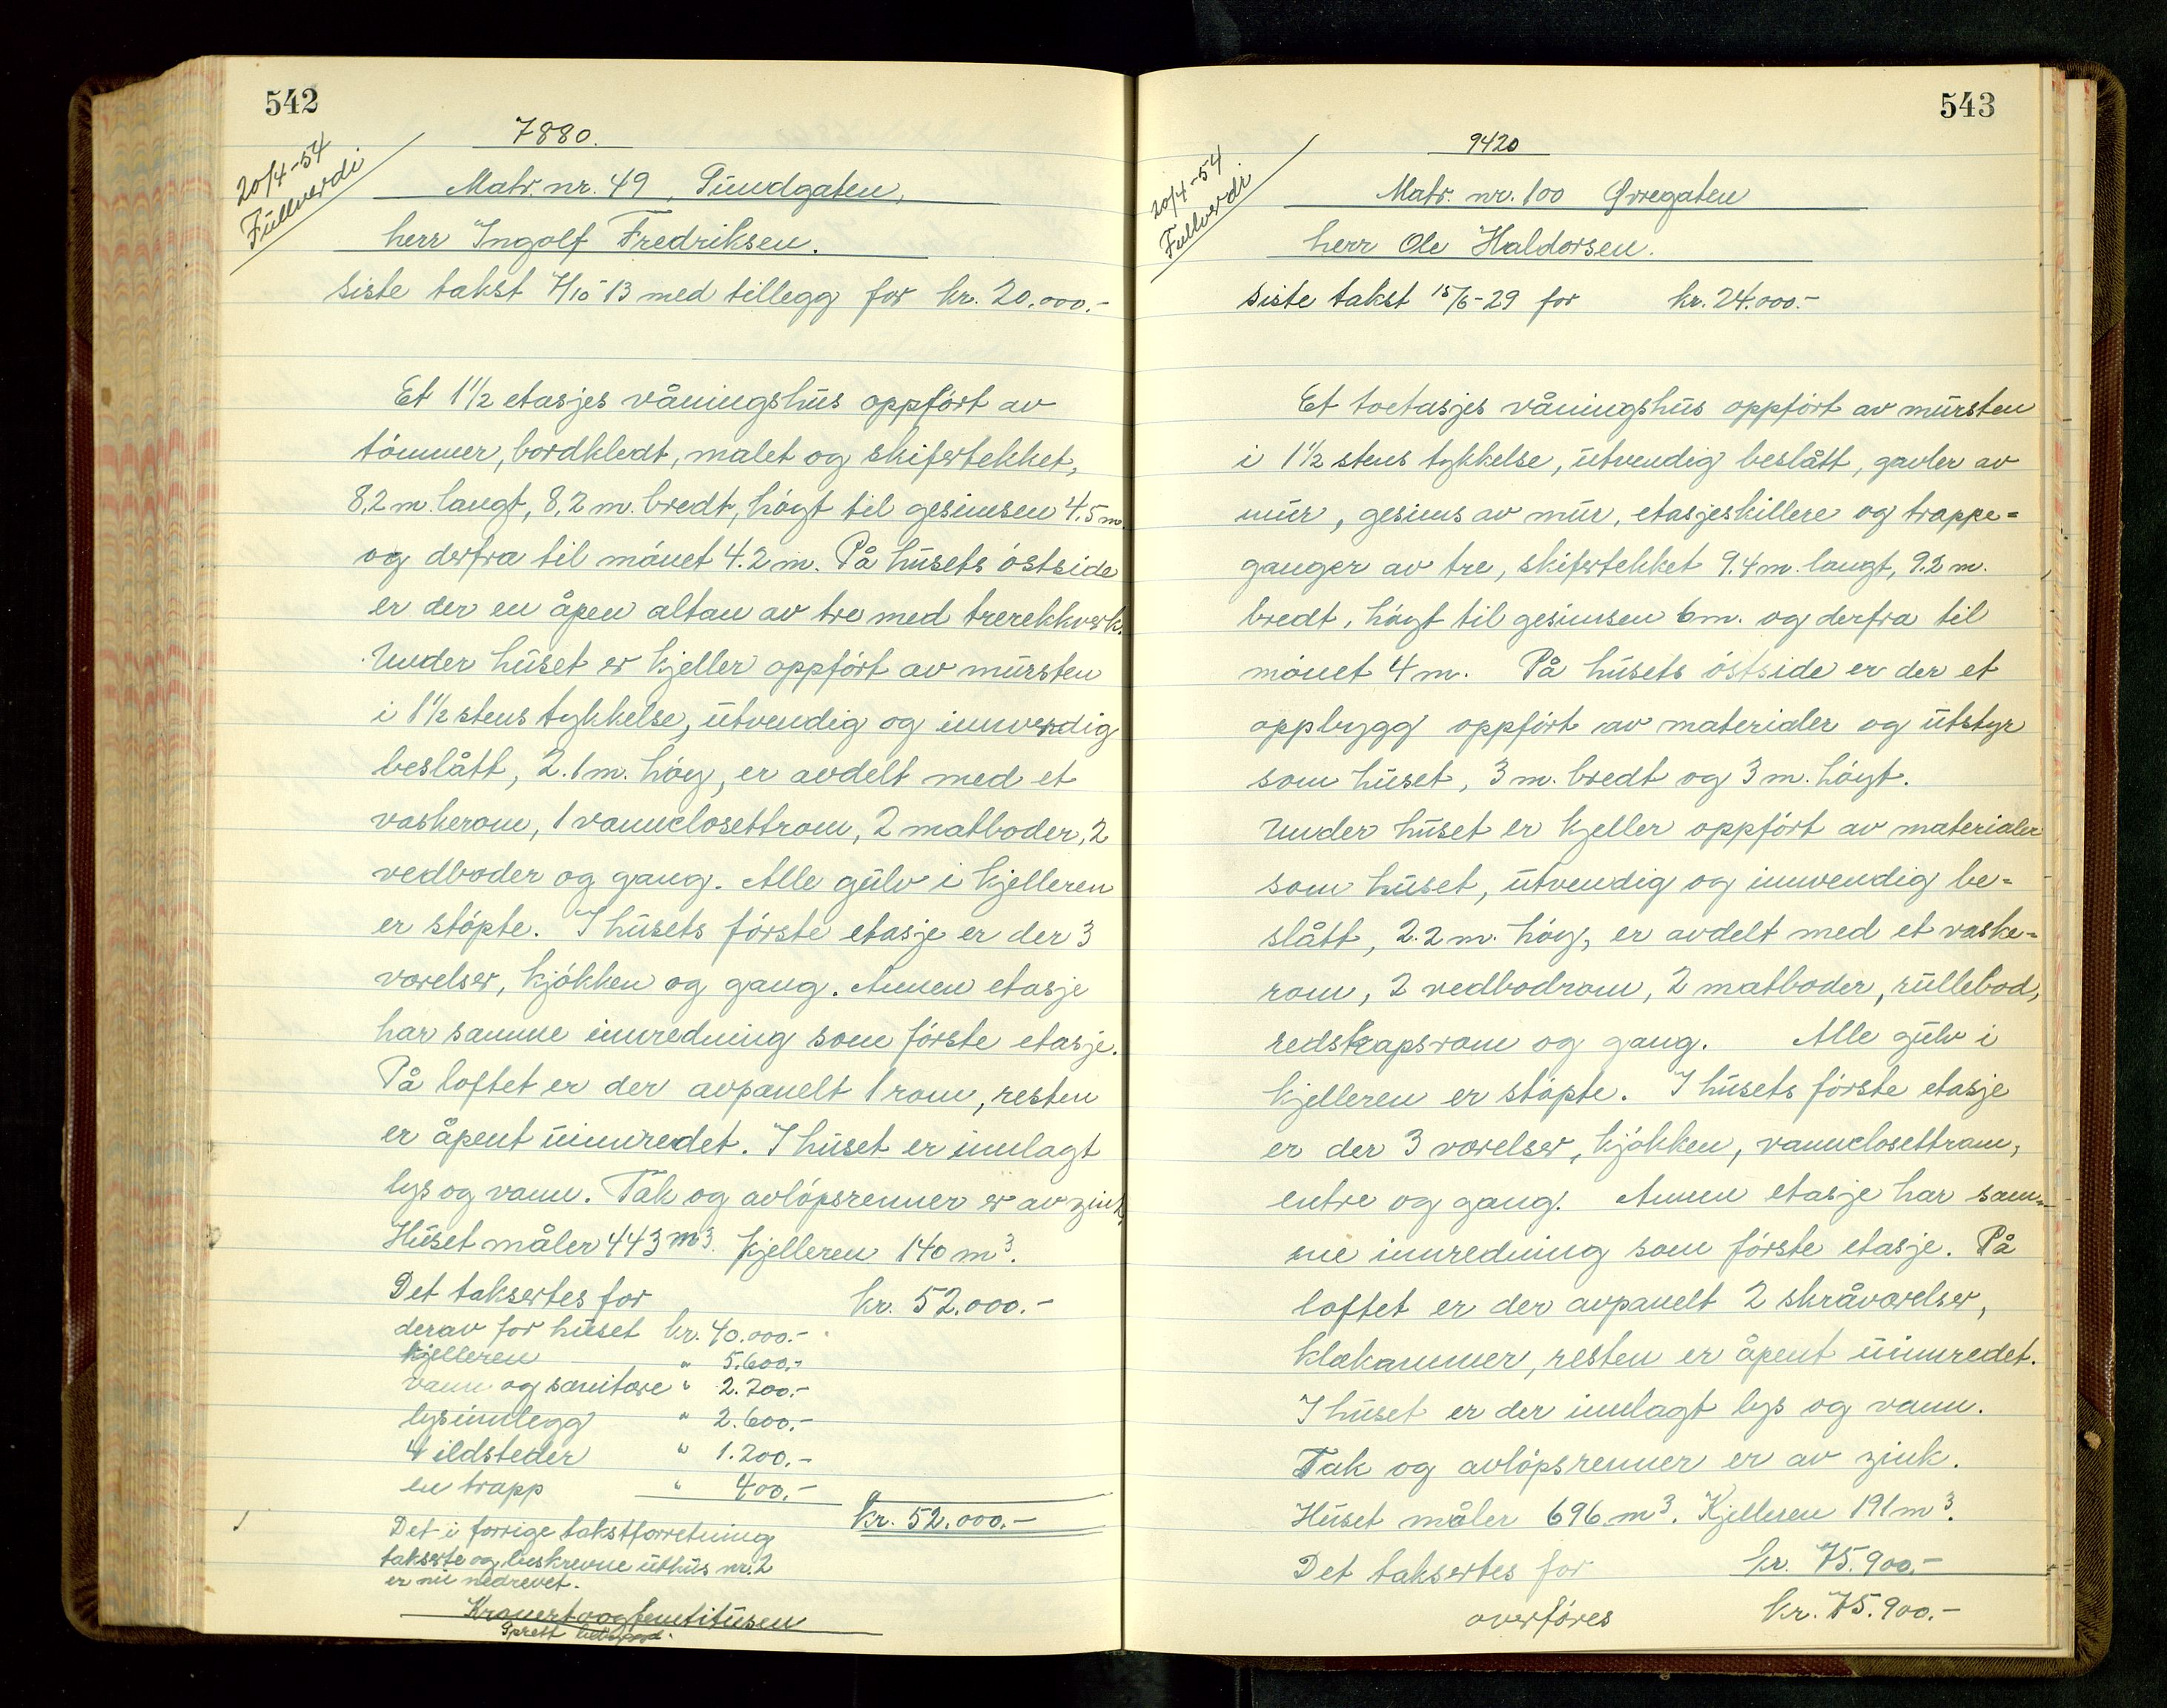 542
7880.
20/4-54
Fullverdi
Matr. nr. 49, Sundgaten,
herr Ingolf Fredriksen.
siste takst 7/10-13 med tillegg for kr. 20.000.-
Et 1 1/2 etasjes våningshus oppfört av
tömmer, bordkledt, malet og skifertekket,
8,2 m. langt, 8,2 m. bredt, högt til gesimsen 4,5 m.
og derfra til mönet 4.2 m. På husets östside
er der en åpen altan av tre med trerekkverk.
Under huset er kjeller oppfört av mursten
i 1 1/2 stens tykkelse, utvendig og innvendig
beslått, 2.1 m. höy, er avdelt med et
vaskerom, 1 vannclosettrom, 2 matboder, 2
vedboder og gang. Alle gulv i kjelleren
er stöpte. I husets förste etasje er der 3
værelser, kjökken og gang. Annen etasje
har samme innredning som förste etasje.
På loftet er der avpanelt 1 rom, resten
er åpent uinnredet. I huset er innlagt
lys og vann. Tak og avlöpsrenner er av zink,
Huset måler 443 m3. kjelleren 140 m3.
Det taksertes for kr. 52.000.-
derav for huset kr. 40.000.-
kjelleren " 5.600.-
vann og sanitære " 2.200.-
lysinnlegg " 2.600.-
4 ildsteder " 1.200.-
en trapp " 400.-
kr. 52.000.-
Det i forrige takstforretning
takserte og beskrevne uthus nr. 2
er nu nedrevet.
Kroner to og femti tusen
543
9420
20/4-54
Fullverdi
Matr. nr. 100 Övregaten
herr Ole Haldorsen.
siste takst 15/6-29 for kr. 24.000.-
Et toetasjes våningshus oppfört av mursten
i 1 1/2 stens tykkelse, utvendig beslått, gavler av
mur, gesims av mur, etasjeskillere og trappe=
ganger av tre, skifertekket 9.4 m. langt, 9.2 m.
bredt, högt til gesimsen 6 m. og derfra til
mönet 4 m. På husets östside er der et
oppbygg oppfört av materialer og utstyr
som huset, 3 m. bredt og 3 m. högt.
Under huset er kjeller oppfört av materialer
som huset, utvendig og innvendig be=
slått, 2.2 m. höy, er avdelt med et vaske=
rom, 2 vedbodrom, 2 matboder, rullebod,
redskapsrom og gang. Alle gulv i
kjelleren er stöpte. I husets förste etasje
er der 3 værelser, kjökken, vannclosettrom,
entre og gang. Annen etasje har sam=
me innredning som förste etasje. På
loftet er der avpanelt 2 skråværelser,
klækammer, resten er åpent uinnredet.
I huset er der innlagt lys og vann.
Tak og avlöpsrenner er av zink.
Huset måler 696 m3. Kjelleren 191 m3.
Det taksertes for kr. 75.900.-
overföres kr. 75.900.-